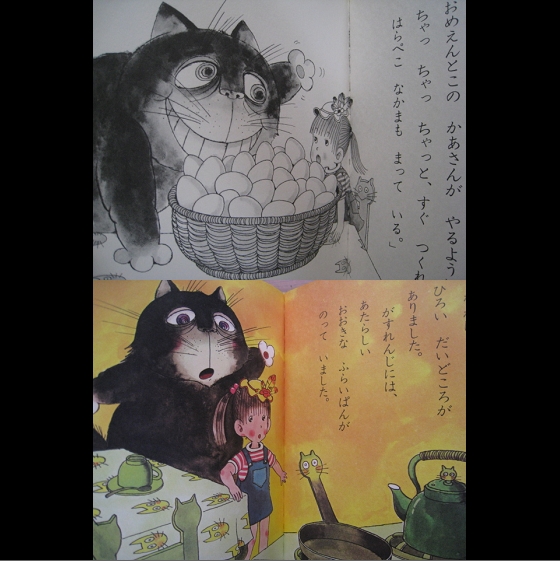 おめえんとこの かあさんが やるよう
ちゃっ ちゃっ ちゃっと、すぐ つくれ
はらぺこ なかまも まって いる。」
ひろい だいどころが
ありました。
がすれんじには、
あたらしい
おおきな ふらいぱんが
のって いました。